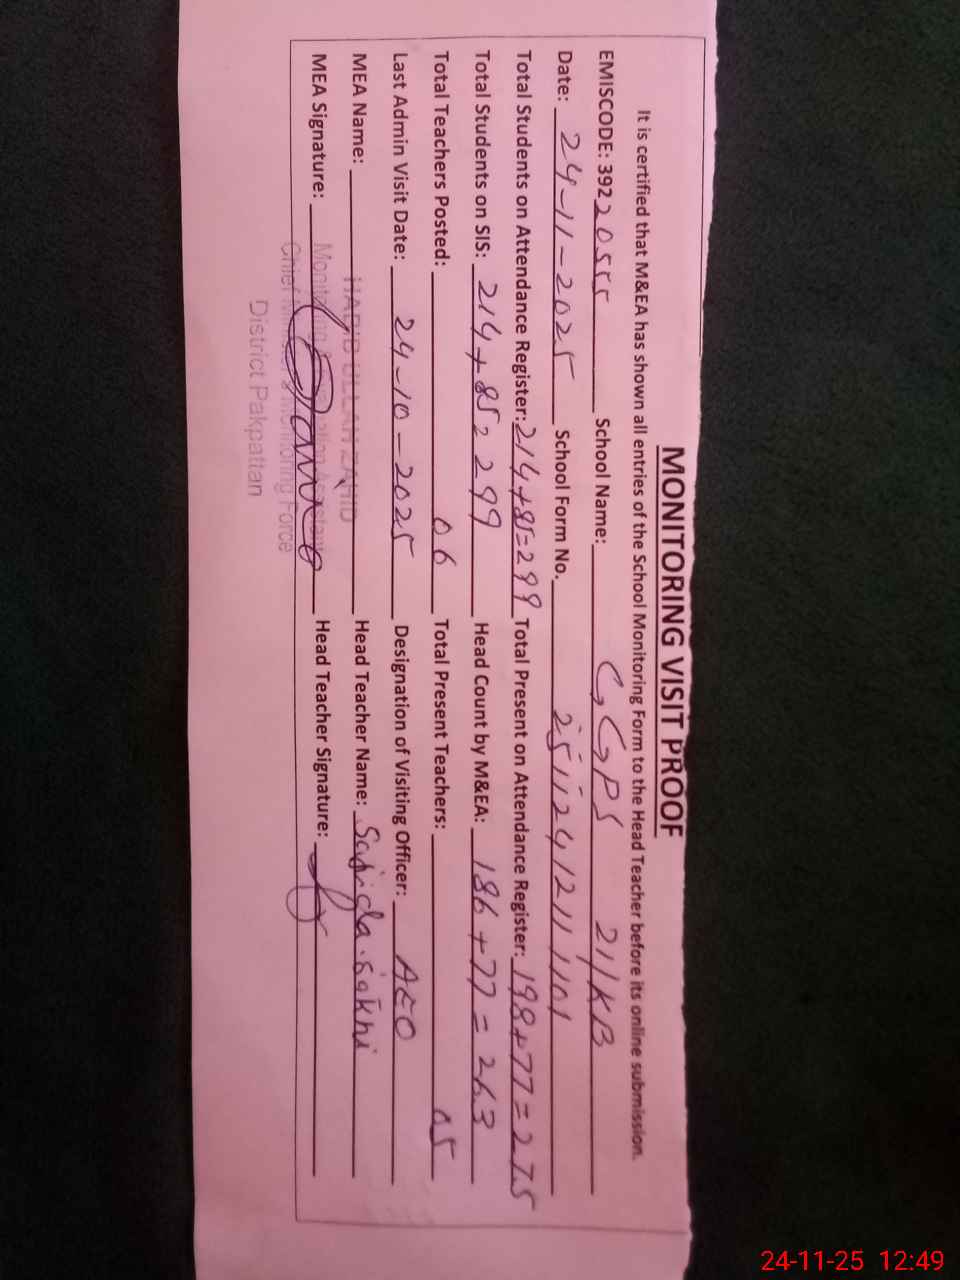 MONITORING VISIT PROOF
It is certified that M&EA has shown all entries of the School Monitoring Form to the Head Teacher before its online submission.
EMISCODE: 39220555 School Name: GGPS 21/KB
Date: 24-11-2025 School Form No. 25112412111101
Total Students on Attendance Register: 214+85=299 Total Present on Attendance Register: 198+77=275
Total Students on SIS: 214+85=299 Head Count by M&EA: 186+77=263
Total Teachers Posted: 06 Total Present Teachers: 05
Last Admin Visit Date: 24-10-2025 Designation of Visiting Officer: AEO
MEA Name: HABIB ULLAH ZAHID Head Teacher Name: Sajida Sakhi
MEA Signature: Head Teacher Signature:
Monitoring & Evaluation Assistant
Chief Minister's Monitoring Force
District Pakpattan
24-11-25 12:49